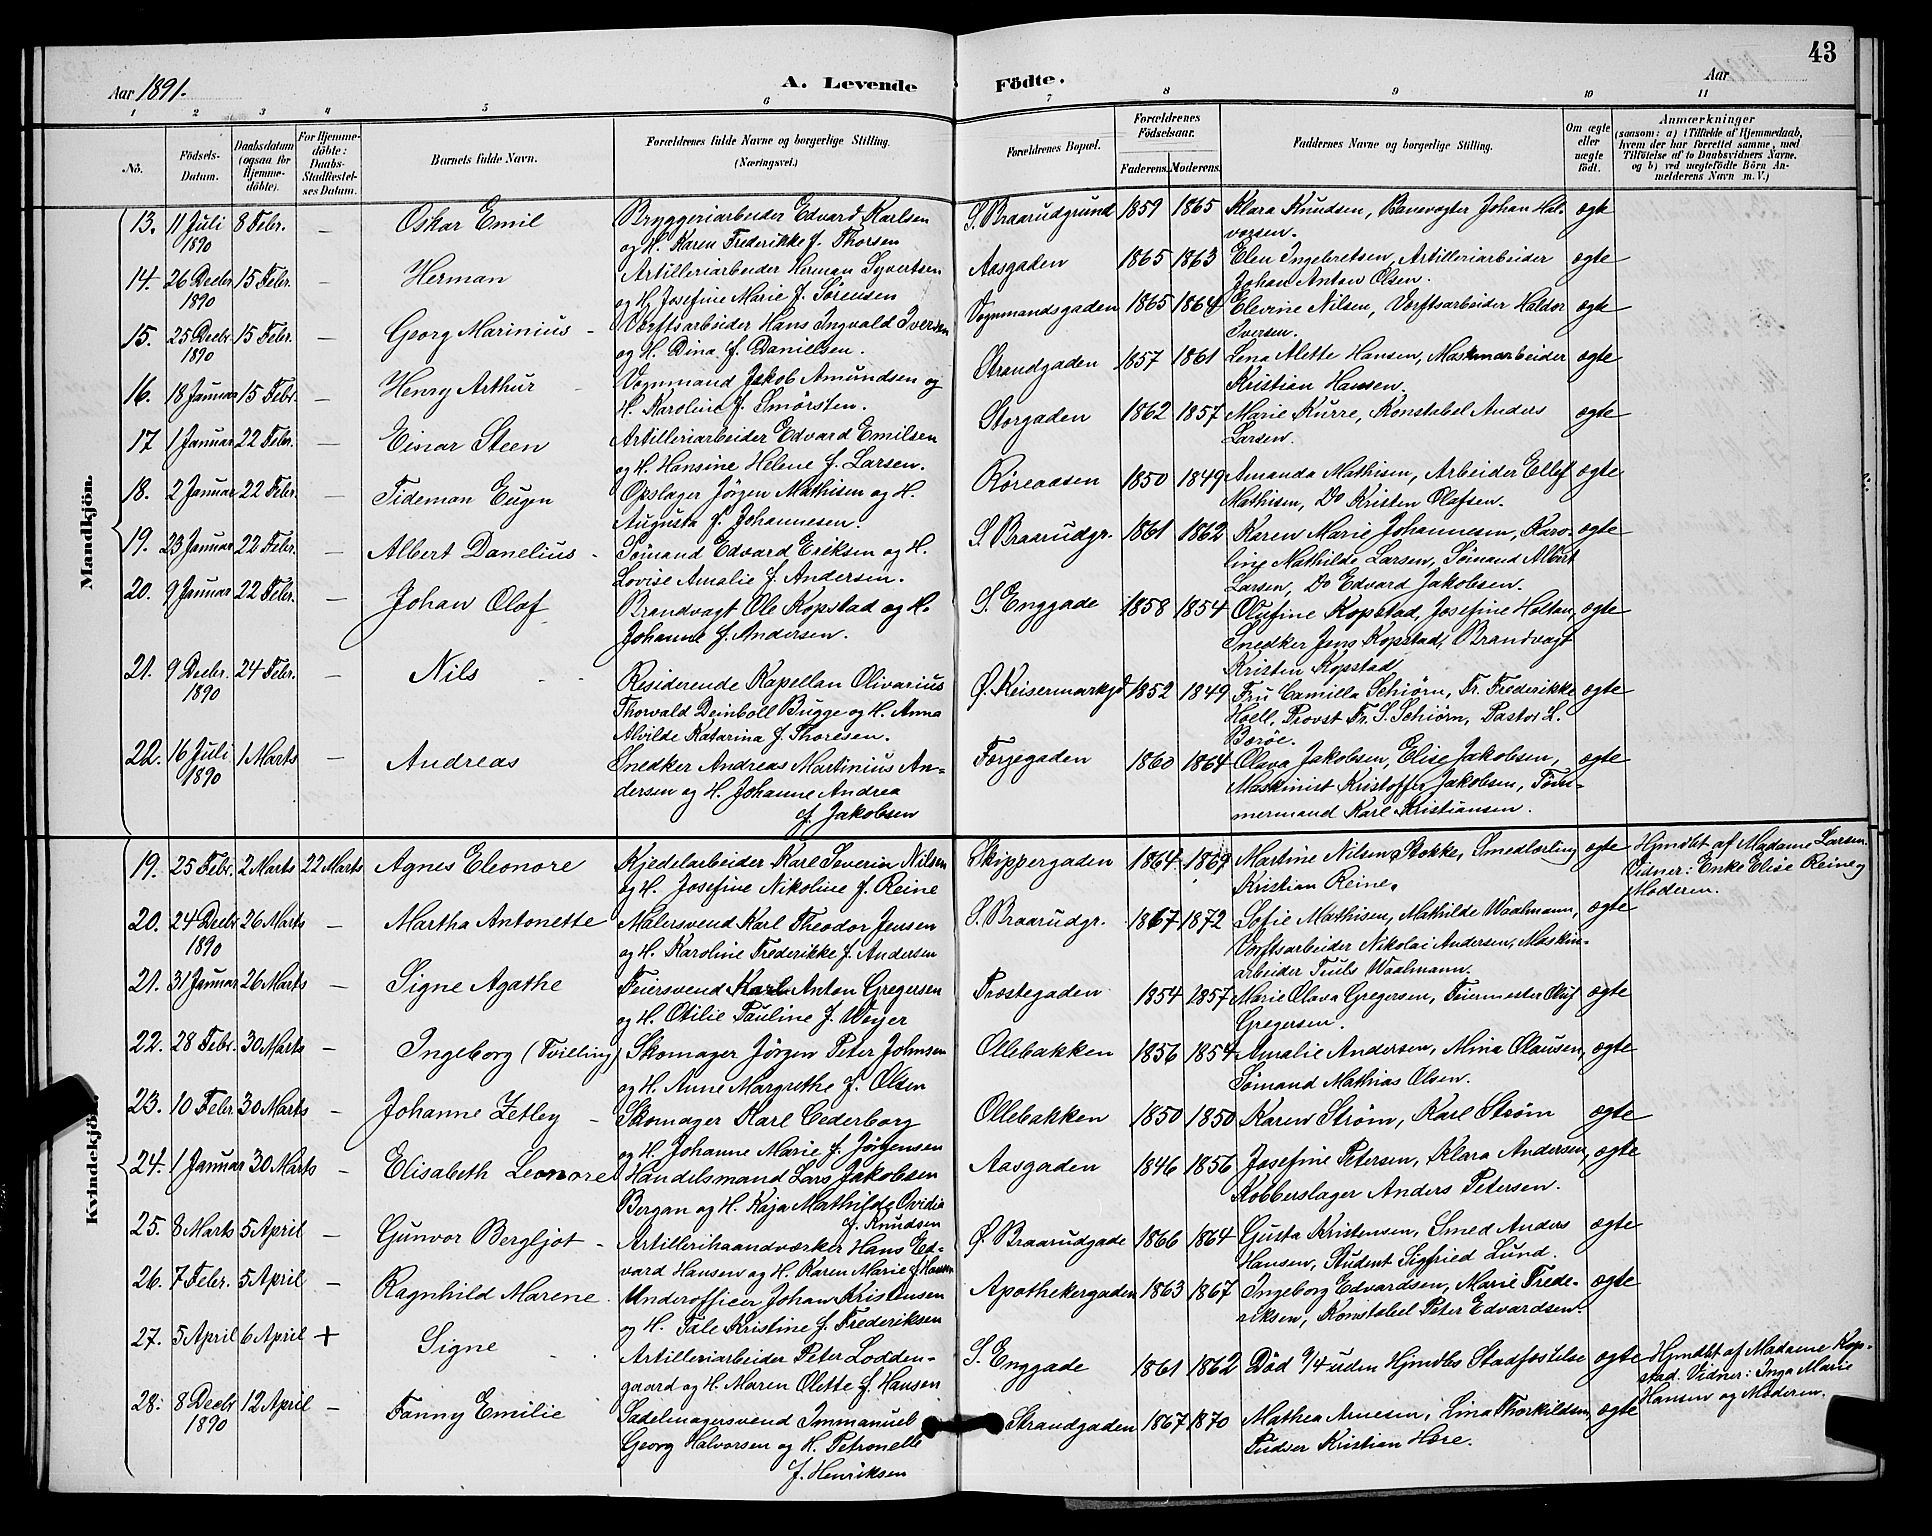 43
Aar 1891.
A. Levende Födte.
Aar
1 2 3 4 5 6 7 8 9 10 11
No.
Födsels-Datum.
Daabsdatum (ogsaa for Hjemmedöbte).
For Hjemmedöbte: Daabs-Stadfæstelses Datum.
Barnets fulde Navn.
Forældrenes fulde Navne og borgerlige Stilling.
(Næringsvei.)
Forældrenes Bopæl.
Forældrenes Födselsaar.
Faderens. Moderens.
Faddernes Navne og borgerlige Stilling.
Om ægte eller uægte födt.
Anmærkninger
(saasom: a) i Tilfælde af Hjemmedaab,
hvem der har forrettet samme, med
Tilföielse af to Daabsvidners Navne,
og b) ved uægtefödte Börn Anmelderens Navn m. V.)
Mandkjön.
13. 11 Juli 8 Febr. — Oskar Emil Bryggeriarbeider Edvard Karlsen S. Braarudgrund 1859 1865 Klara Knudsen, Banevogter Johan Hal- ægte
1890 og H. Karen Frederikke f. Thorsen vorsen.
14. 26 Decbr 15 Febr. — Herman Artilleriarbeider Herman Syvertsen Aasgaden 1865 1863 Elen Ingebretsen, Artilleriarbeider ægte
1890 og H. Josefine Marie f. Sørensen Johan Anton Olsen.
15. 25 Decbr 15 Febr. — Georg Marinius Værftsarbeider Hans Ingvald Iversen Vognmandsgaden 1865 1864 Elevine Nilsen, Værftsarbeider Haldor ægte
1890 og H. Dina f. Danielsen. Iversen.
16. 18 Januar 15 Febr. — Henry Arthur Vognmand Jakob Amundsen og Strandgaden 1857 1861 Lena Alette Hansen, Maskinarbeider ægte
H. Karoline f. Smörsten. Kristian Hansen.
17 1 Januar 22 Febr. — Einar Steen Artilleriarbeider Edvard Emilsen Storgaden 1862 1857 Marie Kurre, Konstabel Anders ægte
og H. Hansine Helene f. Larsen. Larsen.
18. 2 Januar 22 Febr. — Tideman Eugen Opslager Jörgen Mathisen og H. Röreaasen 1850 1849 Amanda Mathisen, Arbeider Ellef ægte
Augusta f. Johannesen. Mathisen, Do Kristen Olafsen.
19. 23 Januar 22 Febr. — Albert Danelius Sömand Edvard Eriksen og H. S. Braarudgr. 1861 1862 Karen Marie Johannesen, Karo- ægte
Lovise Amalie f. Andersen. line Mathilde Larsen, Sömand Albert
Larsen, Do Edvard Jakobsen.
20. 9 Januar 22 Febr. — Johan Olaf Brandvagt Ole Kopstad og H. S. Enggade 1858 1854 Olufine Kopstad, Josefine Holtan, ægte
Johanne f. Andersen. Snedker Jens Kopstad, Brandvagt
Kristen Kopstad
21. 9 Decbr. 24 Febr. — Nils Residerende Kapellan Olivarius Ø. Keisermarkgd 1852 1849 Fru Camilla Schiörn, Fr. Frederikke ægte
1890 Thorvald Deinboll Bugge og H. Anna Hoell, Provst Fr. S. Schiörn, Pastor L.
Alvilde Katarina f. Thoresen. Baröe.
22. 16 Juli 1 Marts — Andreas Snedker Andreas Martinius An- Torjegaden 1860 1864 Olava Jakobsen, Elise Jakobsen, ægte
1890 dersen og H. Johanne Andrea Maskinist Kristoffer Jakobsen, Töm-
f. Jakobsen mermand Karl Kristiansen.
Kvindekjön.
19. 25 Febr. 2 Marts 22 Marts Agnes Eleonore Kjedelarbeider Karl Severin Nilsen Skippergaden 1864 1869 Martine Nilsen Stokke, Smedlærling ægte Hjmdbt af Madame Larsen.
og H. Josefine Nikoline f. Reine Kristian Reine. Vidner: Enke Elise Reine og
Moderen.
20. 24 Decbr 26 Marts — Martha Antonette Malersvend Karl Theodor Jensen S. Braarudgr. 1867 1872 Sofie Mathisen, Mathilde Waalmann, ægte
1890 og H. Karoline Frederikke f. Andersen Værftsarbeider Nikolai Andersen, Maskin-
arbeider Truls Waalmann.
21. 31 Januar 26 Marts — Signe Agathe Feiersvend Karl Anton Gregersen Præstegaden 1854 1857 Marie Olava Gregersen, Feiermester Oluf ægte
og H. Otilie Pauline f. Weyer Gregersen.
22. 28 Febr. 30 Marts — Ingeborg (Tvilling) Skomager Jörgen Peter Johnsen Ollebakken 1856 1854 Amalie Andersen, Mina Clausen, ægte
og H. Anne Margrethe f. Olsen Sömand Mathias Olsen.
23. 10 Febr 30 Marts — Johanne Zetley Skomager Karl Cederborg Ollebakken 1850 1850 Karen Ström, Karl Ström ægte
og H. Johanne Marie f. Jörgensen
24. 1 Januar 30 Marts — Elisabeth Leonore Handelsmand Lars Jakobsen Aasgaden 1846 1856 Josefine Petersen, Klara Andersen, ægte
Bergan og H. Kaja Mathilde Ovidia Kobberslager Anders Petersen.
f. Knudsen
25. 8 Marts 5 April — Gunvor Bergljot Artillerihaandværker Hans Ed- Ø. Braarudgade 1866 1864 Gusta Kristensen, Smed Anders ægte
vard Hansen og H. Karen Marie f. Hansen Hansen, Student Sigfried Lund.
26. 7 Febr. 5 April — Ragnhild Marene Underofficer Johan Kristensen Apothekergaden 1863 1867 Ingeborg Edvardsen, Marie Frede- ægte
og H. Tale Kristine f. Frederiksen riksen, Konstabel Peter Edvardsen.
27. 5 April 6 April + Signe Artilleriarbeider Peter Lodden- S. Enggade 1861 1862 Död 9/4 uden Hjmdbs Stadfæstelse ægte Hjmdbt af Madame Kop-
gaard og H. Maren Olette f. Hansen stad. Vidner: Inga Marie
Hansen og Moderen.
28. 8 Decbr 12 April — Fanny Emilie Sadelmagersvend Immanuel Strandgaden 1867 1870 Mathea Arnesen, Lina Thorkildsen, ægte
1890 Georg Halvorsen og H. Petronelle Pudser Kristian Hore.
f. Henriksen